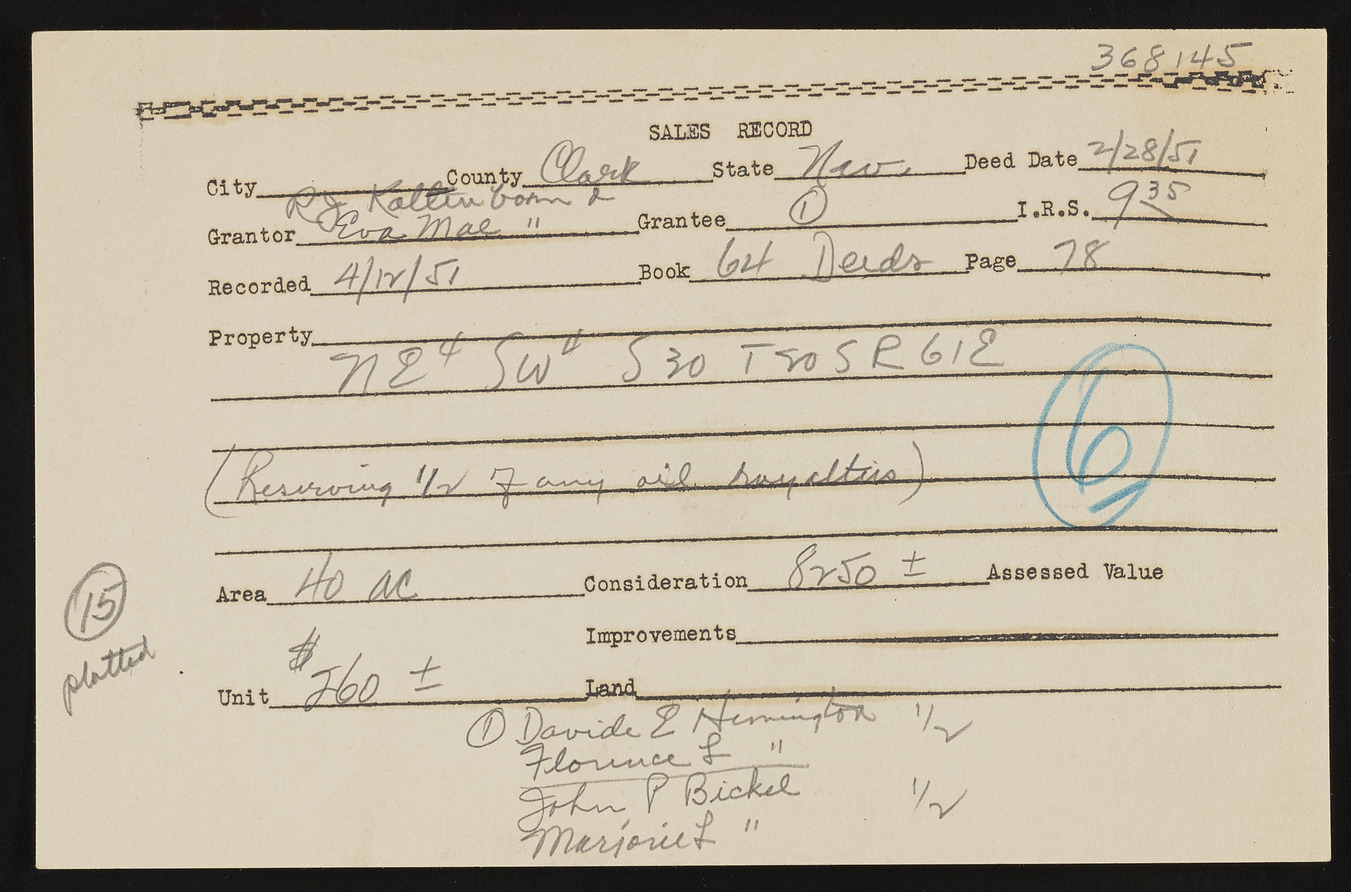 368145
SALES RECORD
City County Clark State Nev. Deed Date 2/28/51
RJ Kaltenborn &
Grantor Eva Mae " Grantee ① I.R.S. 9 35
Recorded 4/12/51 Book 64 Deeds Page 78
Property
NE4 SW4 S30 T20S R61E
6
(Reserving 1/2 of any oil royalties)
Area 40 ac Consideration 8250 ± Assessed Value
15
platted
Improvements
Unit $260 ± Land
① Davide E Hernington 1/2
Florence L "
John P Bickel 1/2
Marjorie L "